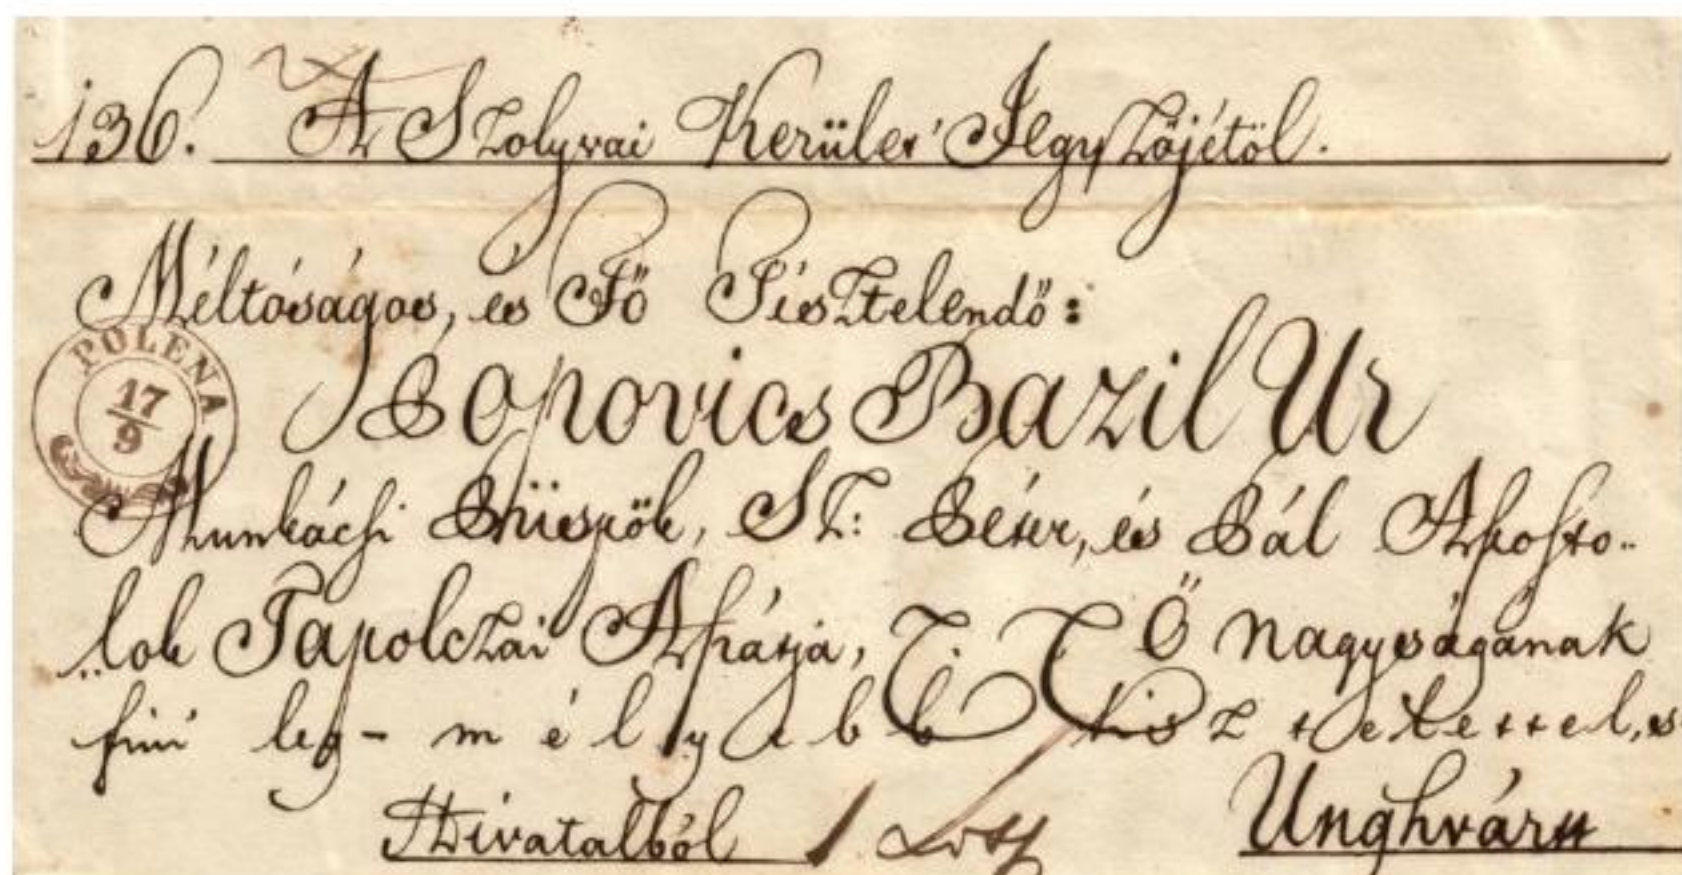 136. A Szolyvai Kerület Jegyzőjétöl.
Méltóságos, és Fő Tisztelendő:
POLENA
17
9
Popovics Bazil Ur
Munkácsi Püspök, Sz: Péter, és Pál Aposto-
lok Tapolczai Apátja, T. T Ő Nagyságának
fiúi leg-mélyebb tisztelettel, s
Hivatalból 1 Loth Unghvárt